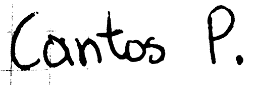 Cantos P.